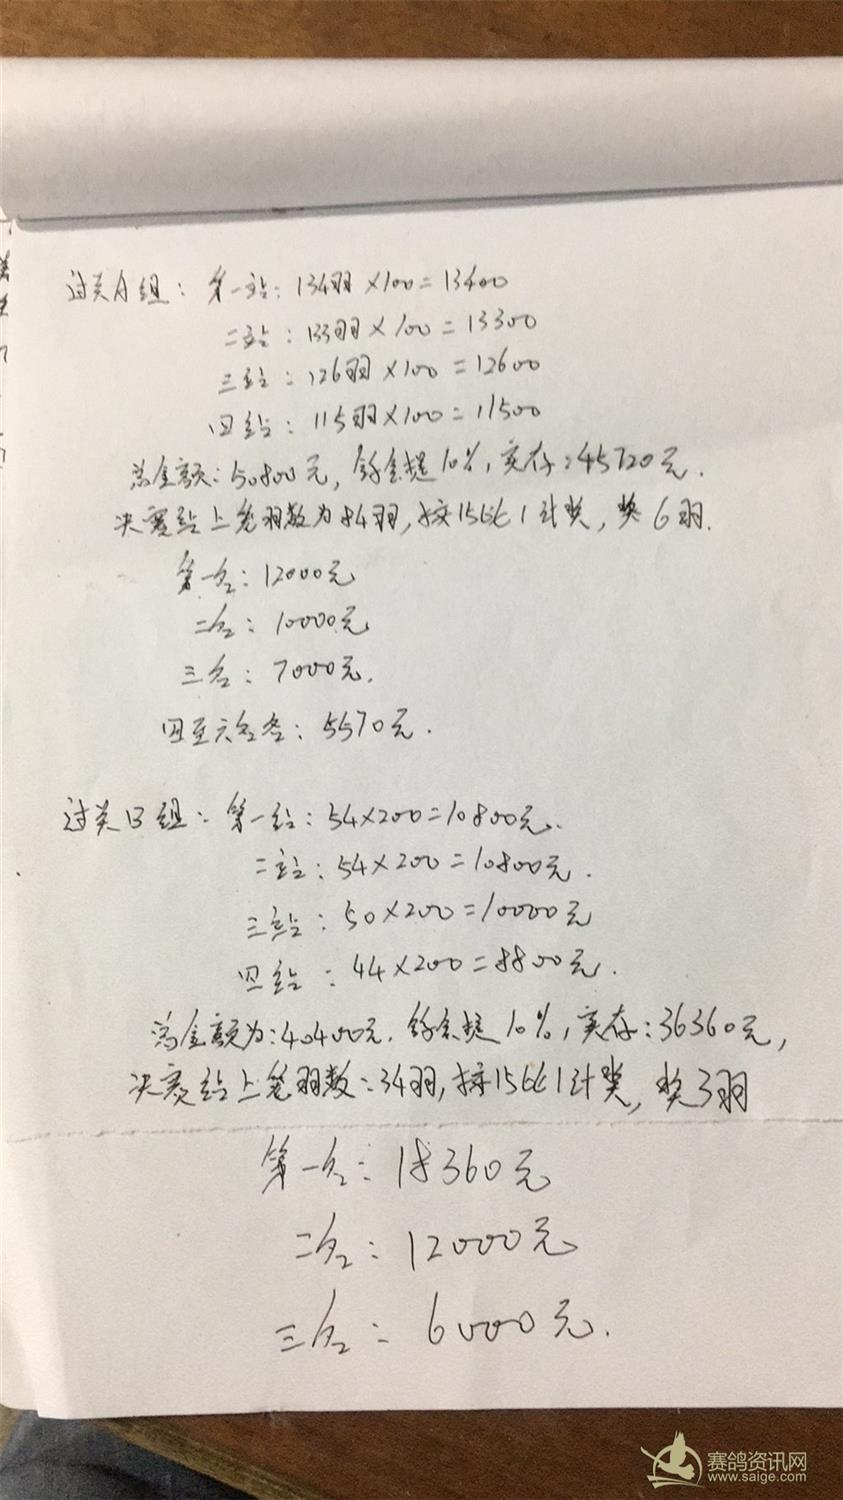 过关A组：第一站：134羽×100=13400
二站：133羽×100=13300
三站：126羽×100=12600
四站：115羽×100=11500
总金额：50800元，余金提10%，实存：45720元．
决赛站上笼羽数为84羽，按15比1计奖，奖6羽．
第一名：12000元
二名：10000元
三名：7000元．
四至六名各：5570元．
过关B组：第一站：54×200=10800元．
二站：54×200=10800元．
三站：50×200=10000元
四站：44×200=8800元．
总金额为：40400元．余金提10%，实存：36360元，
决赛站上笼羽数：34羽，按15比1计奖，奖3羽
第一名：18360元
二名：12000元
三名：6000元．
赛鸽资讯网
www.saige.com